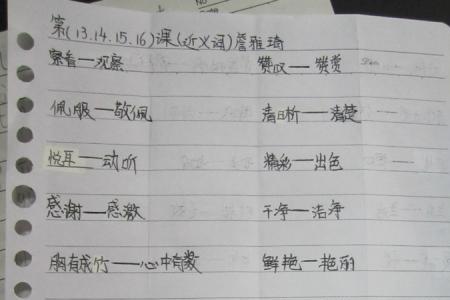 第(13.14.15.16)课(近义词)詹雅琦
察看—观察 赞叹—赞赏
佩服—敬佩 清晰—清楚
悦耳—动听 精彩—出色
感谢—感激 干净—洁净
胸有成竹—心中有数 鲜艳—艳丽